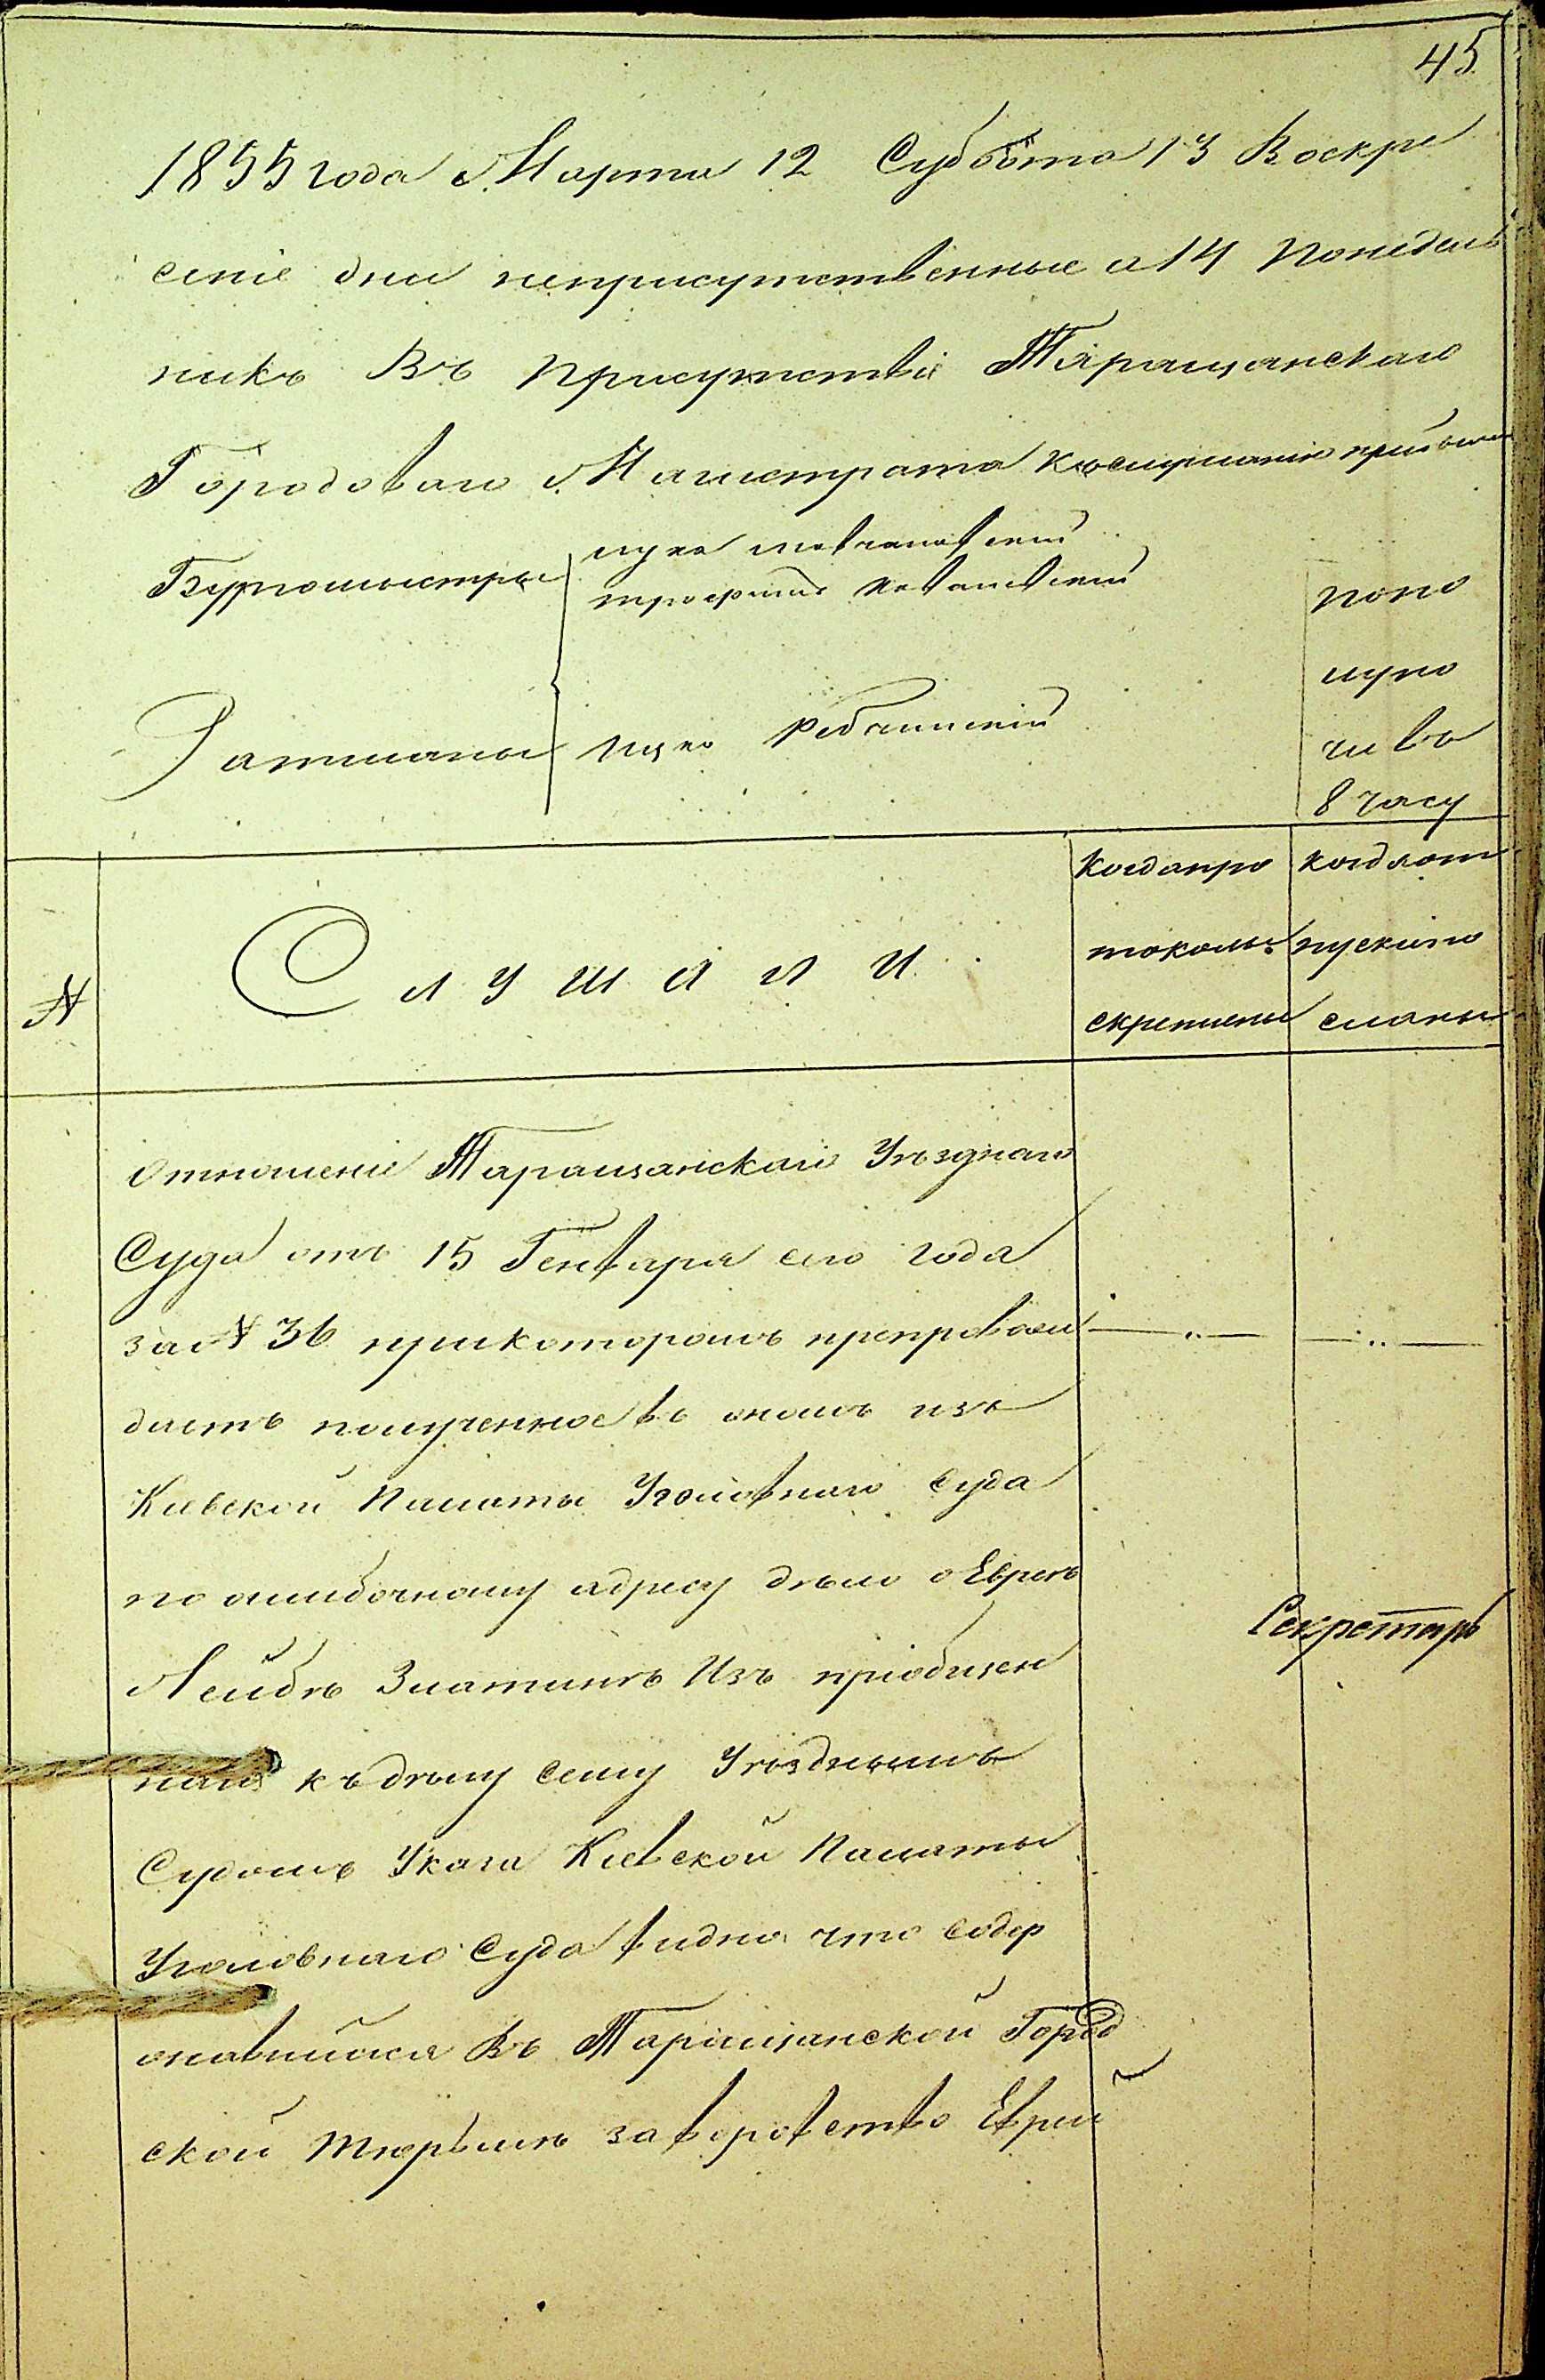 45
1855 года Марта 12 Суббота 13 Воскре
сеніе дни неприсутственные а 14 Понедель
никъ Въ Присутствіе Таращанскаго
Городоваго Магистрата къ слушанію прибыли
Бургомыстры
трофимъ
Ратманы Ицко
попо
луно
чи въ
8 часу
N
Слушали
когда про
токолы
скреплены
когда от
пуски по
сланы
Отношеніе Таращанскаго Уѣзднаго
Суда отъ 15 Генваря сего года
за N 36 при которомъ препровож
даетъ полученное въ ономъ изъ
Кіевской Палаты Уголовнаго Суда
по ошибочному адресу дѣло о Евреѣ
Лейбѣ Златинѣ Изъ пріобщен
наго къ дѣлу сему Уѣзднымъ
Судомъ Указа Кіевской Палаты
Уголовнаго Суда видно что содер
жавшійся Въ Таращанской Город
ской тюрьмѣ за воровство Еврей
Секретарь